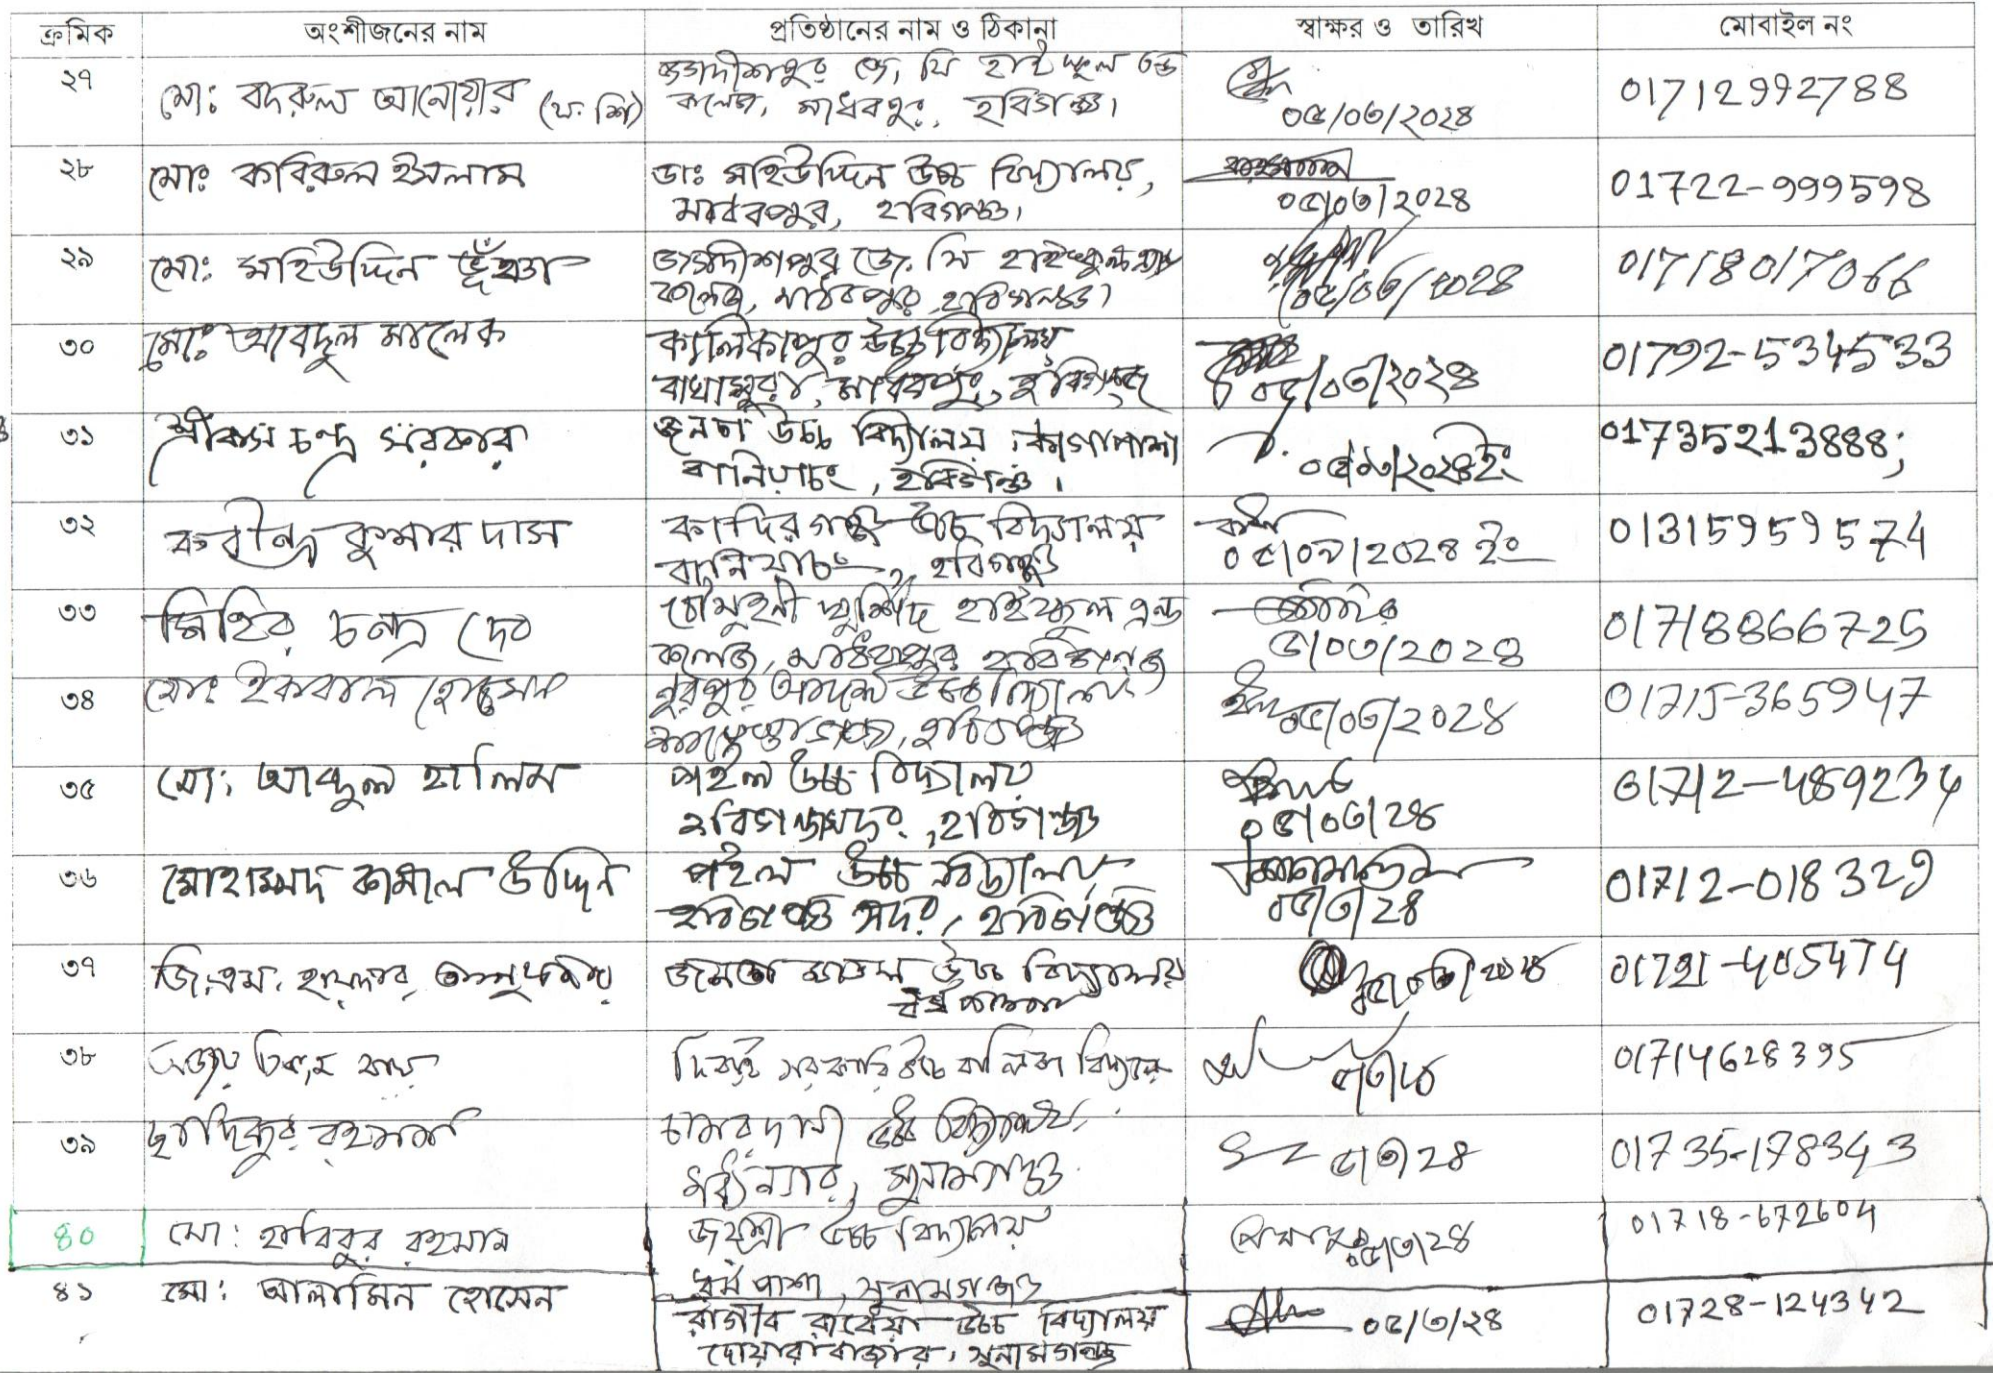 ক্রমিক অংশীজনের নাম প্রতিষ্ঠানের নাম ও ঠিকানা স্বাক্ষর ও তারিখ মোবাইল নং
২৭ মোঃ বদরুল আনোয়ার জগদীশপুর জে, সি হাই স্কুল এন্ড
কলেজ, মাধবপুর, হবিগঞ্জ। ০৫/০৩/২০২৪ 01712992788
২৮ মোঃ কবিরুল ইসলাম ডাঃ মহিউদ্দিন উচ্চ বিদ্যালয়,
মাধবপুর, হবিগঞ্জ। ০৫/০৩/২০২৪ 01722-999598
২৯ মোঃ মহিউদ্দিন ভূঁঞা জগদীশপুর জে. সি হাইস্কুল এন্ড
কলেজ, মাধবপুর, হবিগঞ্জ। ০৫/০৩/২০২৪ 01718017066
৩০ মোঃ আবদুল মালেক কালিকাপুর উচ্চ বিদ্যালয়
মাধবপুর, হবিগঞ্জ ০৫/০৩/২০২৪ 01792-534533
৩১ চন্দ্র সরকার জনতা উচ্চ বিদ্যালয়,
বানিয়াচং, হবিগঞ্জ। ০৫/০৩/২০২৪ইং 01735213888;
৩২ কবীন্দ্র কুমার দাস কাদিরগঞ্জ উচ্চ বিদ্যালয়
বানিয়াচং, হবিগঞ্জ ০৫/০৩/২০২৪ ইং 01315959574
৩৩ মিহির চন্দ্র দেব চৌমুহনী খুর্শিদ হাইস্কুল এন্ড
কলেজ, মাধবপুর হবিগঞ্জ ৫/০৩/২০২৪ 01718866725
৩৪ মোঃ ইকবাল হোসেন নুরপুর আদর্শ উচ্চ বিদ্যালয়
শায়েস্তাগঞ্জ, হবিগঞ্জ ০৫/০৩/২০২৪ 01715-365947
৩৫ মো: আব্দুল হালিম পইল উচ্চ বিদ্যালয়
হবিগঞ্জ সদর, হবিগঞ্জ ০৫/০৩/২৪ 01712-489234
৩৬ মোহাম্মদ কামাল উদ্দিন পইল উচ্চ বিদ্যালয়
হবিগঞ্জ সদর, হবিগঞ্জ ০৫/৩/২৪ 01712-018329
৩৭ জি.এম. হায়দার জনতা মডেল উচ্চ বিদ্যালয়
01721-405474
৩৮ রায় দিরাই সরকারি উচ্চ বালিকা বিদ্যালয় ৫/৩/২৪ 01714628395
৩৯ ছাদিকুর রহমান চামরদানী উচ্চ বিদ্যালয়,
মধ্যনগর, সুনামগঞ্জ ৫/৩/২৪ 01735-178343
৪০ মো: হাবিবুর রহমান জয়শ্রী উচ্চ বিদ্যালয়
ধর্মপাশা, সুনামগঞ্জ ০৫/৩/২৪ 01718-672604
৪১ মো: আলামিন হোসেন রাগীব রাবেয়া উচ্চ বিদ্যালয়
দোয়ারাবাজার, সুনামগঞ্জ ০৫/৩/২৪ 01728-124342